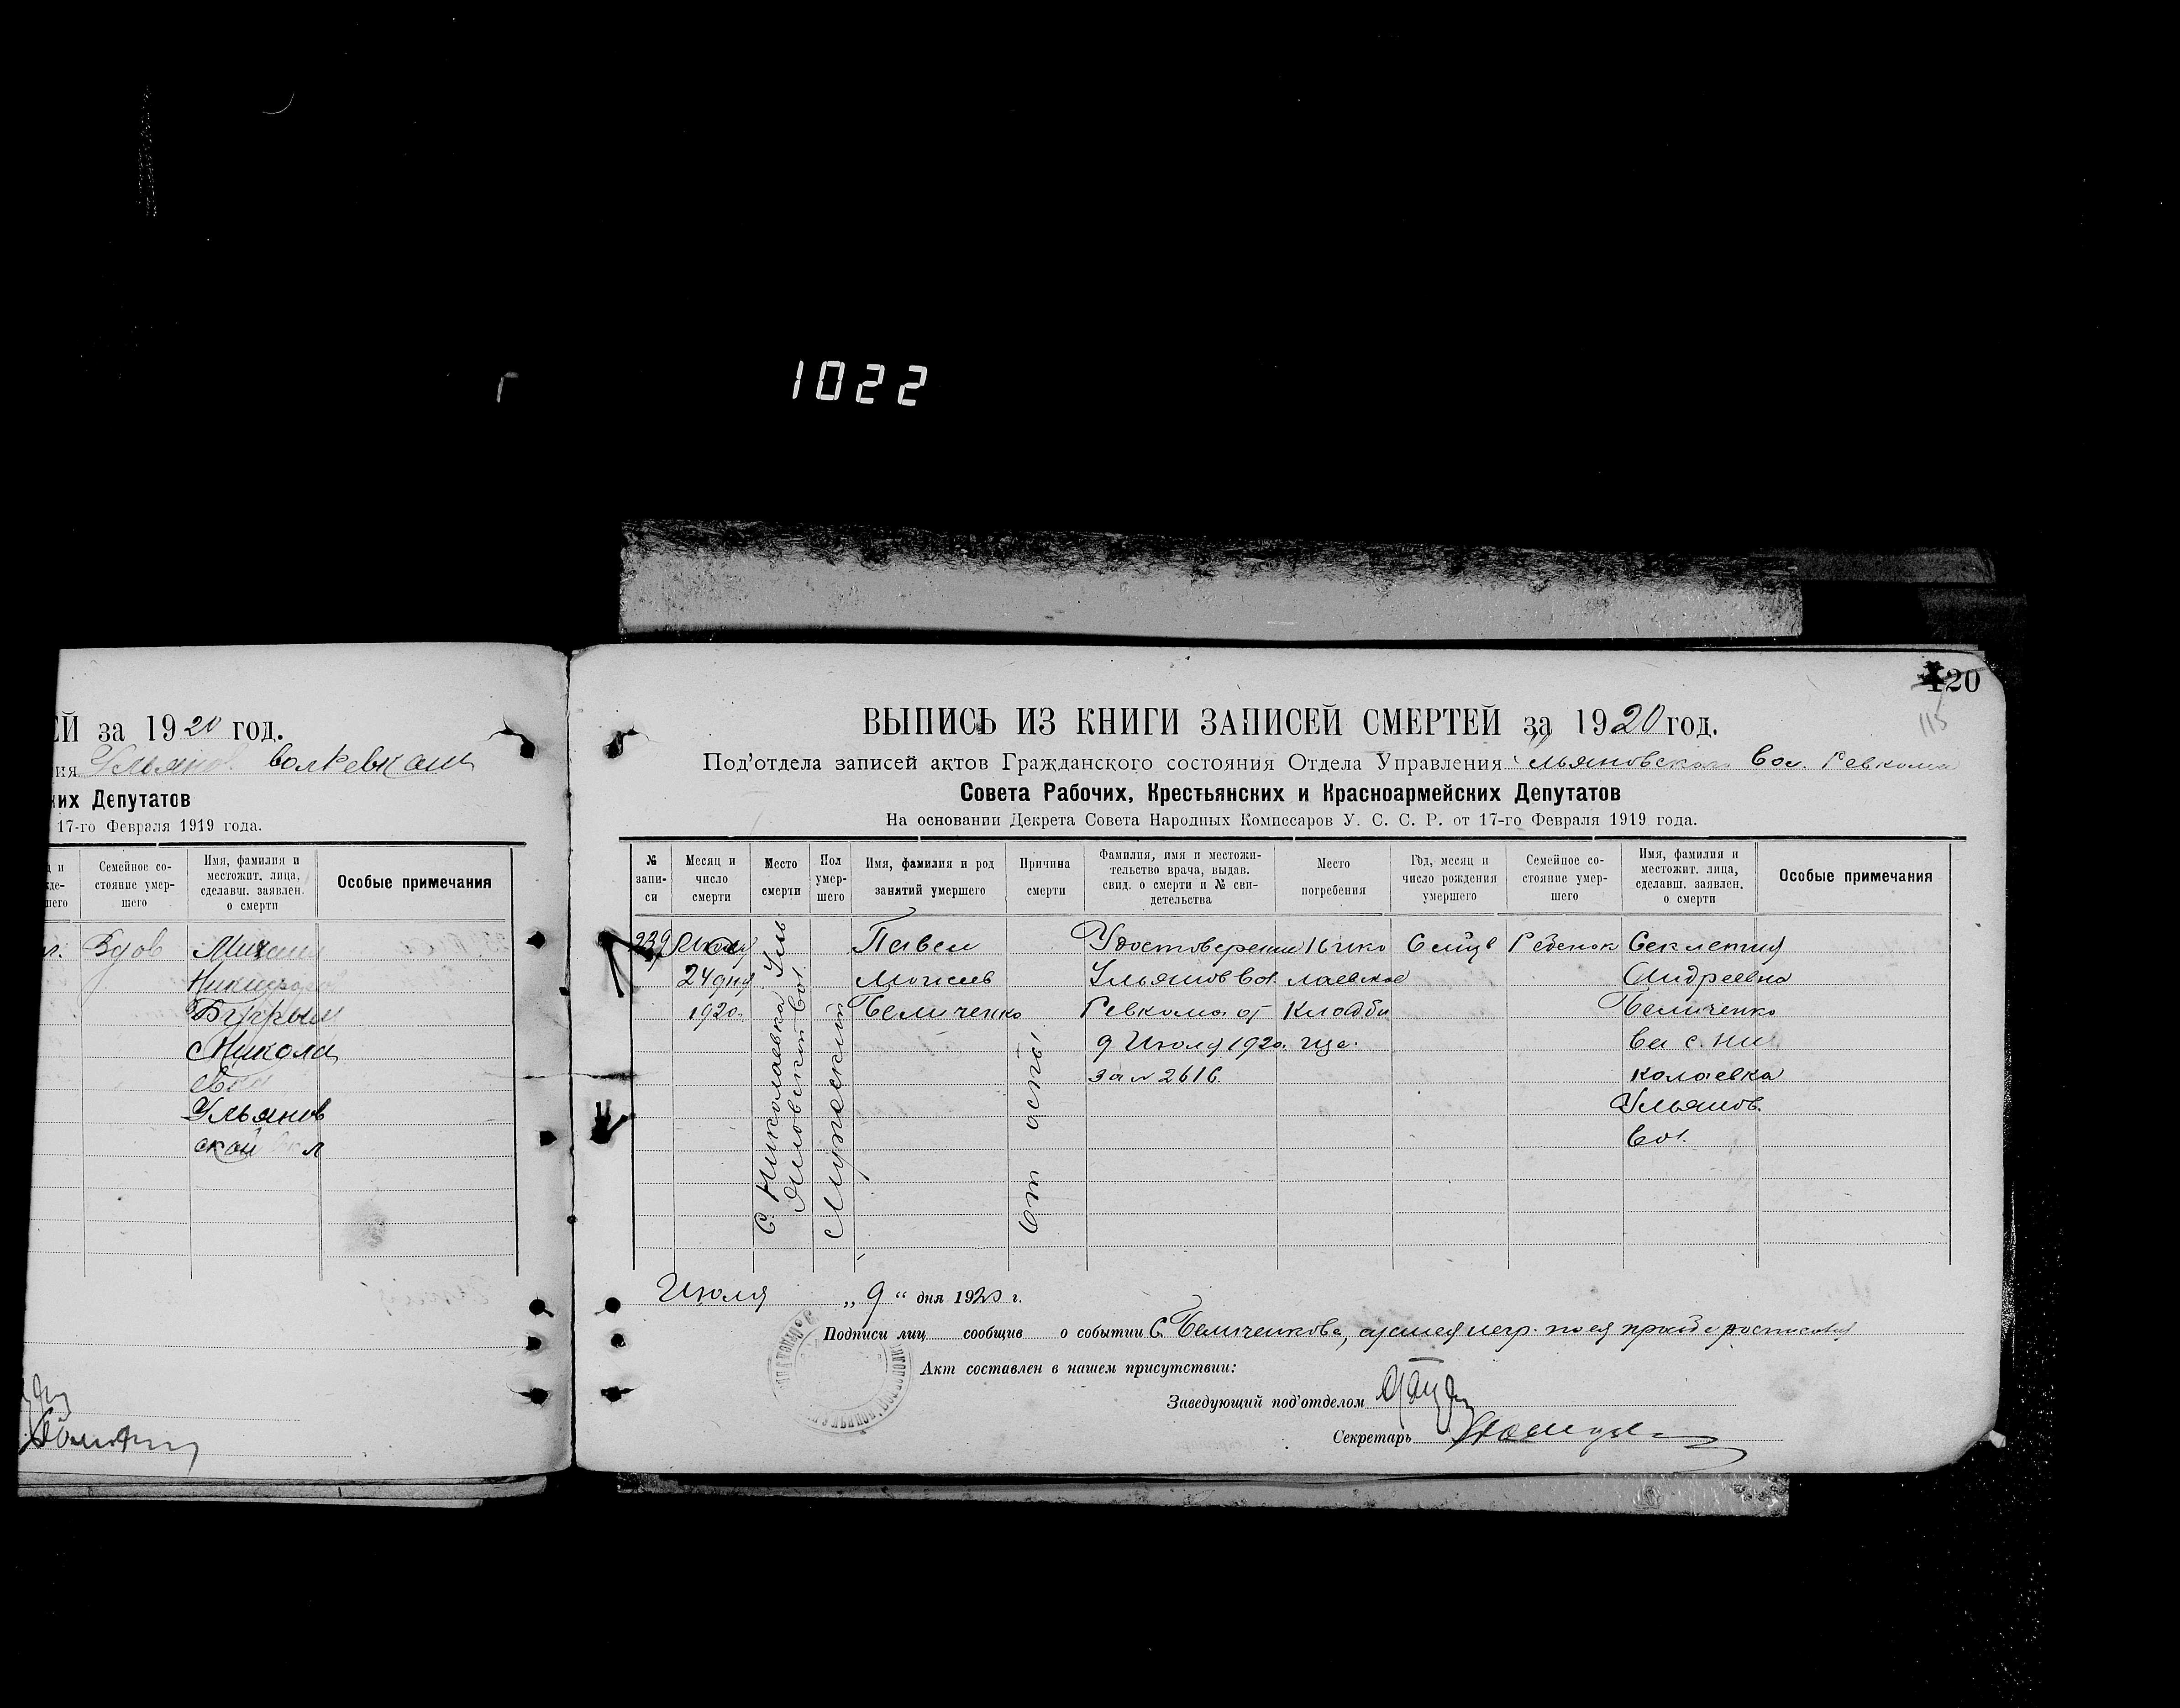 1022
ЕЙ за 1920 год.
ия Ульянов. волревкома
ких Депутатов
17-го Февраля 1919 года.
Семейное со-
стояние умер-
шего
Имя, фамилия и
местожит. лица,
сделавш. заявлен.
о смерти
Особые примечания
Вдов
Бугрым
Никола
Ульянов
ской
120
115
ВЫПИСЬ ИЗ КНИГИ ЗАПИСЕЙ СМЕРТЕЙ за 1920 год.
Под'отдела записей актов Гражданского состояния Отдела Управления Ульяновского Вол. Ревкома
Совета Рабочих, Крестьянских и Красноармейских Депутатов
На основании Декрета Совета Народных Комиссаров У. С. С. Р. от 17-го Февраля 1919 года.
№
запи-
си
Месяц и
число
смерти
Место
смерти
Пол
умер-
шего
Имя, фамилия и род
занятий умершего
Причина
смерти
Фамилия, имя и местожи-
тельство врача, выдав.
свид. о смерти и № сви-
детельства
Место
погребения
Год, месяц и
число рождения
умершего
Семейное со-
стояние умер-
шего
Имя, фамилия и
местожит. лица,
сделавш. заявлен.
о смерти
Особые примечания
239
24 дня
1920.
С. Николаевка Уль
яновской Вол.
Мужеский
Павел
Моисеев
Беличенко
От оспы
Удостоверение
Ульянов Вол.
Ревкома от
9 Июля 1920.
за № 2616.
Нико
лаевкое
Кладби
ще.
6 мцв
Ребенок
Секлетия
Андреевна
Беличенко
ва с. Ни
колаевка
Ульянов.
Вол.
Июля „ 9 “ дня 1920 г.
Подписи лиц сообщив о событии С. Беличенкова,
Акт составлен в нашем присутствии:
Заведующий под'отделом
Секретарь